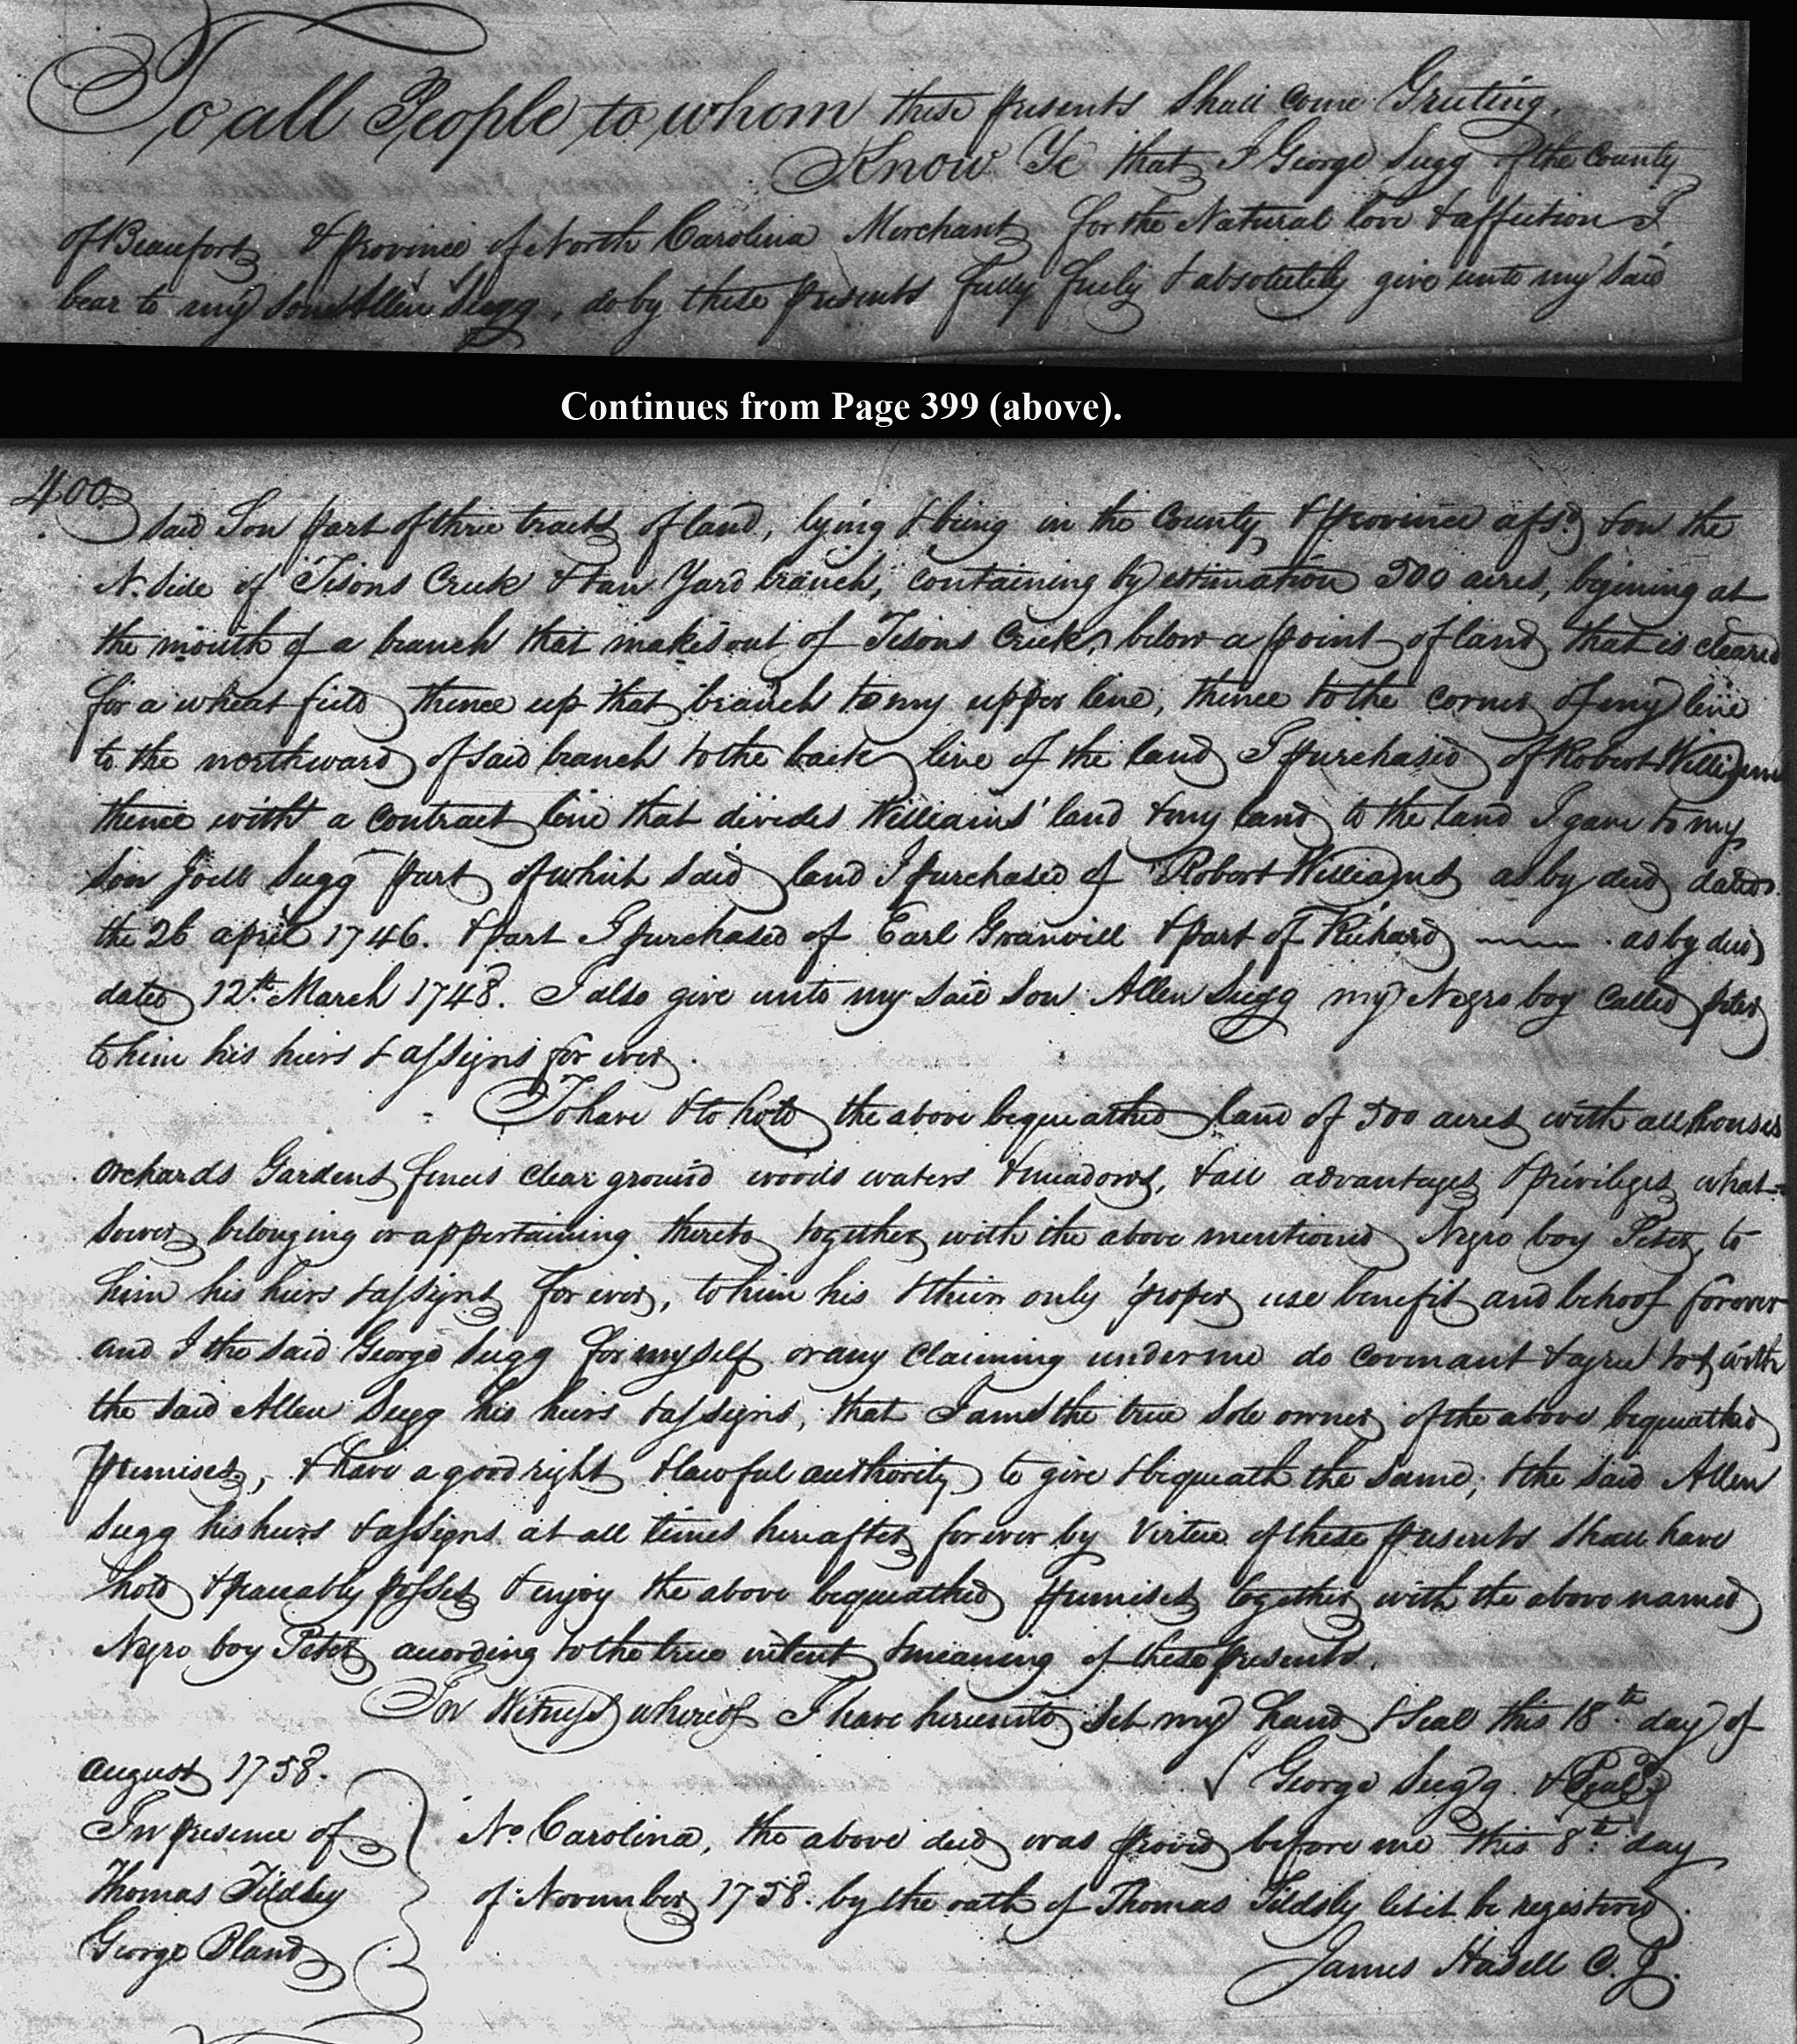 To all People to whom these presents Shall Come Greeting,
Know Ye that I George Sugg of the County
of Beaufort & province of North Carolina Merchant for the Natural love & affection I
bear to my son Allen Sugg, do by these presents fully freely & absolutely give unto my said
Continues from Page 399 (above).
400
said Son part of three tracts of land, lying & being in the County & province afsd. & on the
N. side of Tisons Creek & tan Yard branch, containing by estimation 500 acres, begining at
the mouth of a branch that makes out of Tisons Creek, below a point of land that is cleared
for a wheat field thence up that branch to my upper line, thence to the corner of my line
to the northward of said branch to the back line of the land I purchased of Robert Williams
thence with a contract line that divides Williams' land & my land to the land I gave to my
son Joell Sugg part of which said land I purchased of Robert Williams as by deed dated
the 26 april 1746. & part I purchased of Earl Granvill & part of Richard ——— . as by deed
dated 12th March 1748. I also give unto my said son Allen Sugg my Negro boy called peter
to him his heirs & assigns for ever.
To have & to hold the above bequeathed land of 500 acres with all houses
orchards Gardens fences clear ground woods waters & meadows, & all advantages & privileges what-
soever belonging or appertaining thereto together with the above mentioned Negro boy Peter, to
him his heirs & assigns for ever, to him his & their only proper use benefit and behoof forever
and I the said George Sugg for my self or any claiming under me do covenant & agree to & with
the said Allen Sugg his heirs & assigns, that I am the true sole owner of the above bequeathed
premises, & have a good right & lawful authority to give & bequeath the same; & the said Allen
Sugg his heirs & assigns at all times hereafter for ever by Virtue of these presents shall have
hold & peaceably posses & enjoy the above bequeathed premises together with the above named
Negro boy Peter according to the true intent & meaning of these presents.
In Witness whereof I have hereunto set my hand & Seal this 18th day of
august 1758.
George Sugg & Seal
In presence of
Thomas Tildsley
George Bland
No Carolina, the above deed was proved before me this 8th day
of November 1758. by the oath of Thomas Tildsly let it be registered.
James Hasell C. J.